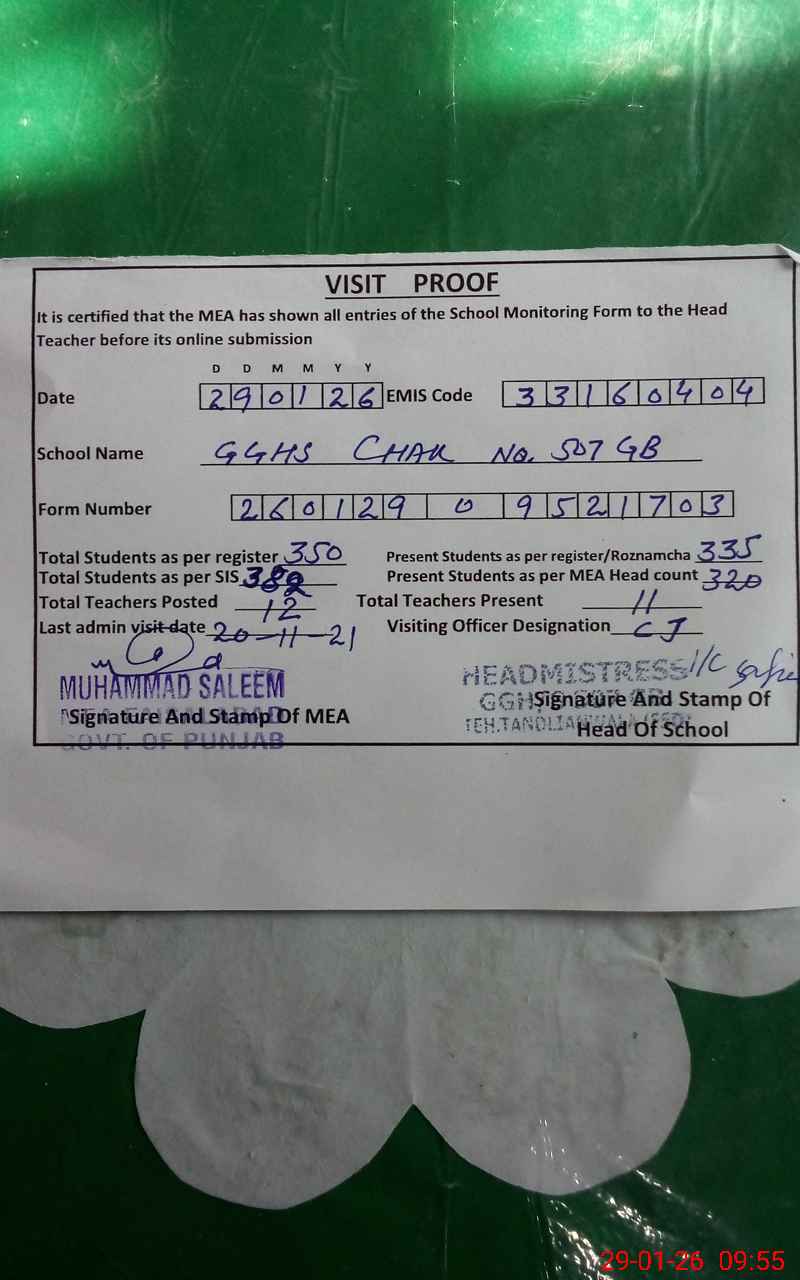 VISIT PROOF
It is certified that the MEA has shown all entries of the School Monitoring Form to the Head
Teacher before its online submission
D D M M Y Y
Date 290126 EMIS Code 33160404
School Name GGHS CHAK NO. 507 GB
Form Number 260129 0 9521703
Total Students as per register 350 Present Students as per register/Roznamcha 335
Total Students as per SIS Present Students as per MEA Head count 320
Total Teachers Posted 12 Total Teachers Present 11
Last admin visit date 20-11-21 Visiting Officer Designation CJ
MUHAMMAD SALEEM HEADMISTRESS I/C
Signature And Stamp Of MEA Signature And Stamp Of
GOVT. OF PUNJAB Head Of School
29-01-26 09:55